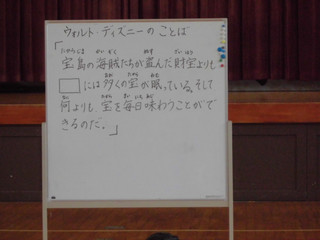 ウォルト・ディズニーの ことば
「宝島の海賊たちが盗んだ財宝よりも
□には多くの宝が眠っている。そして
何よりも、宝を毎日味わうことがで
きるのだ。」